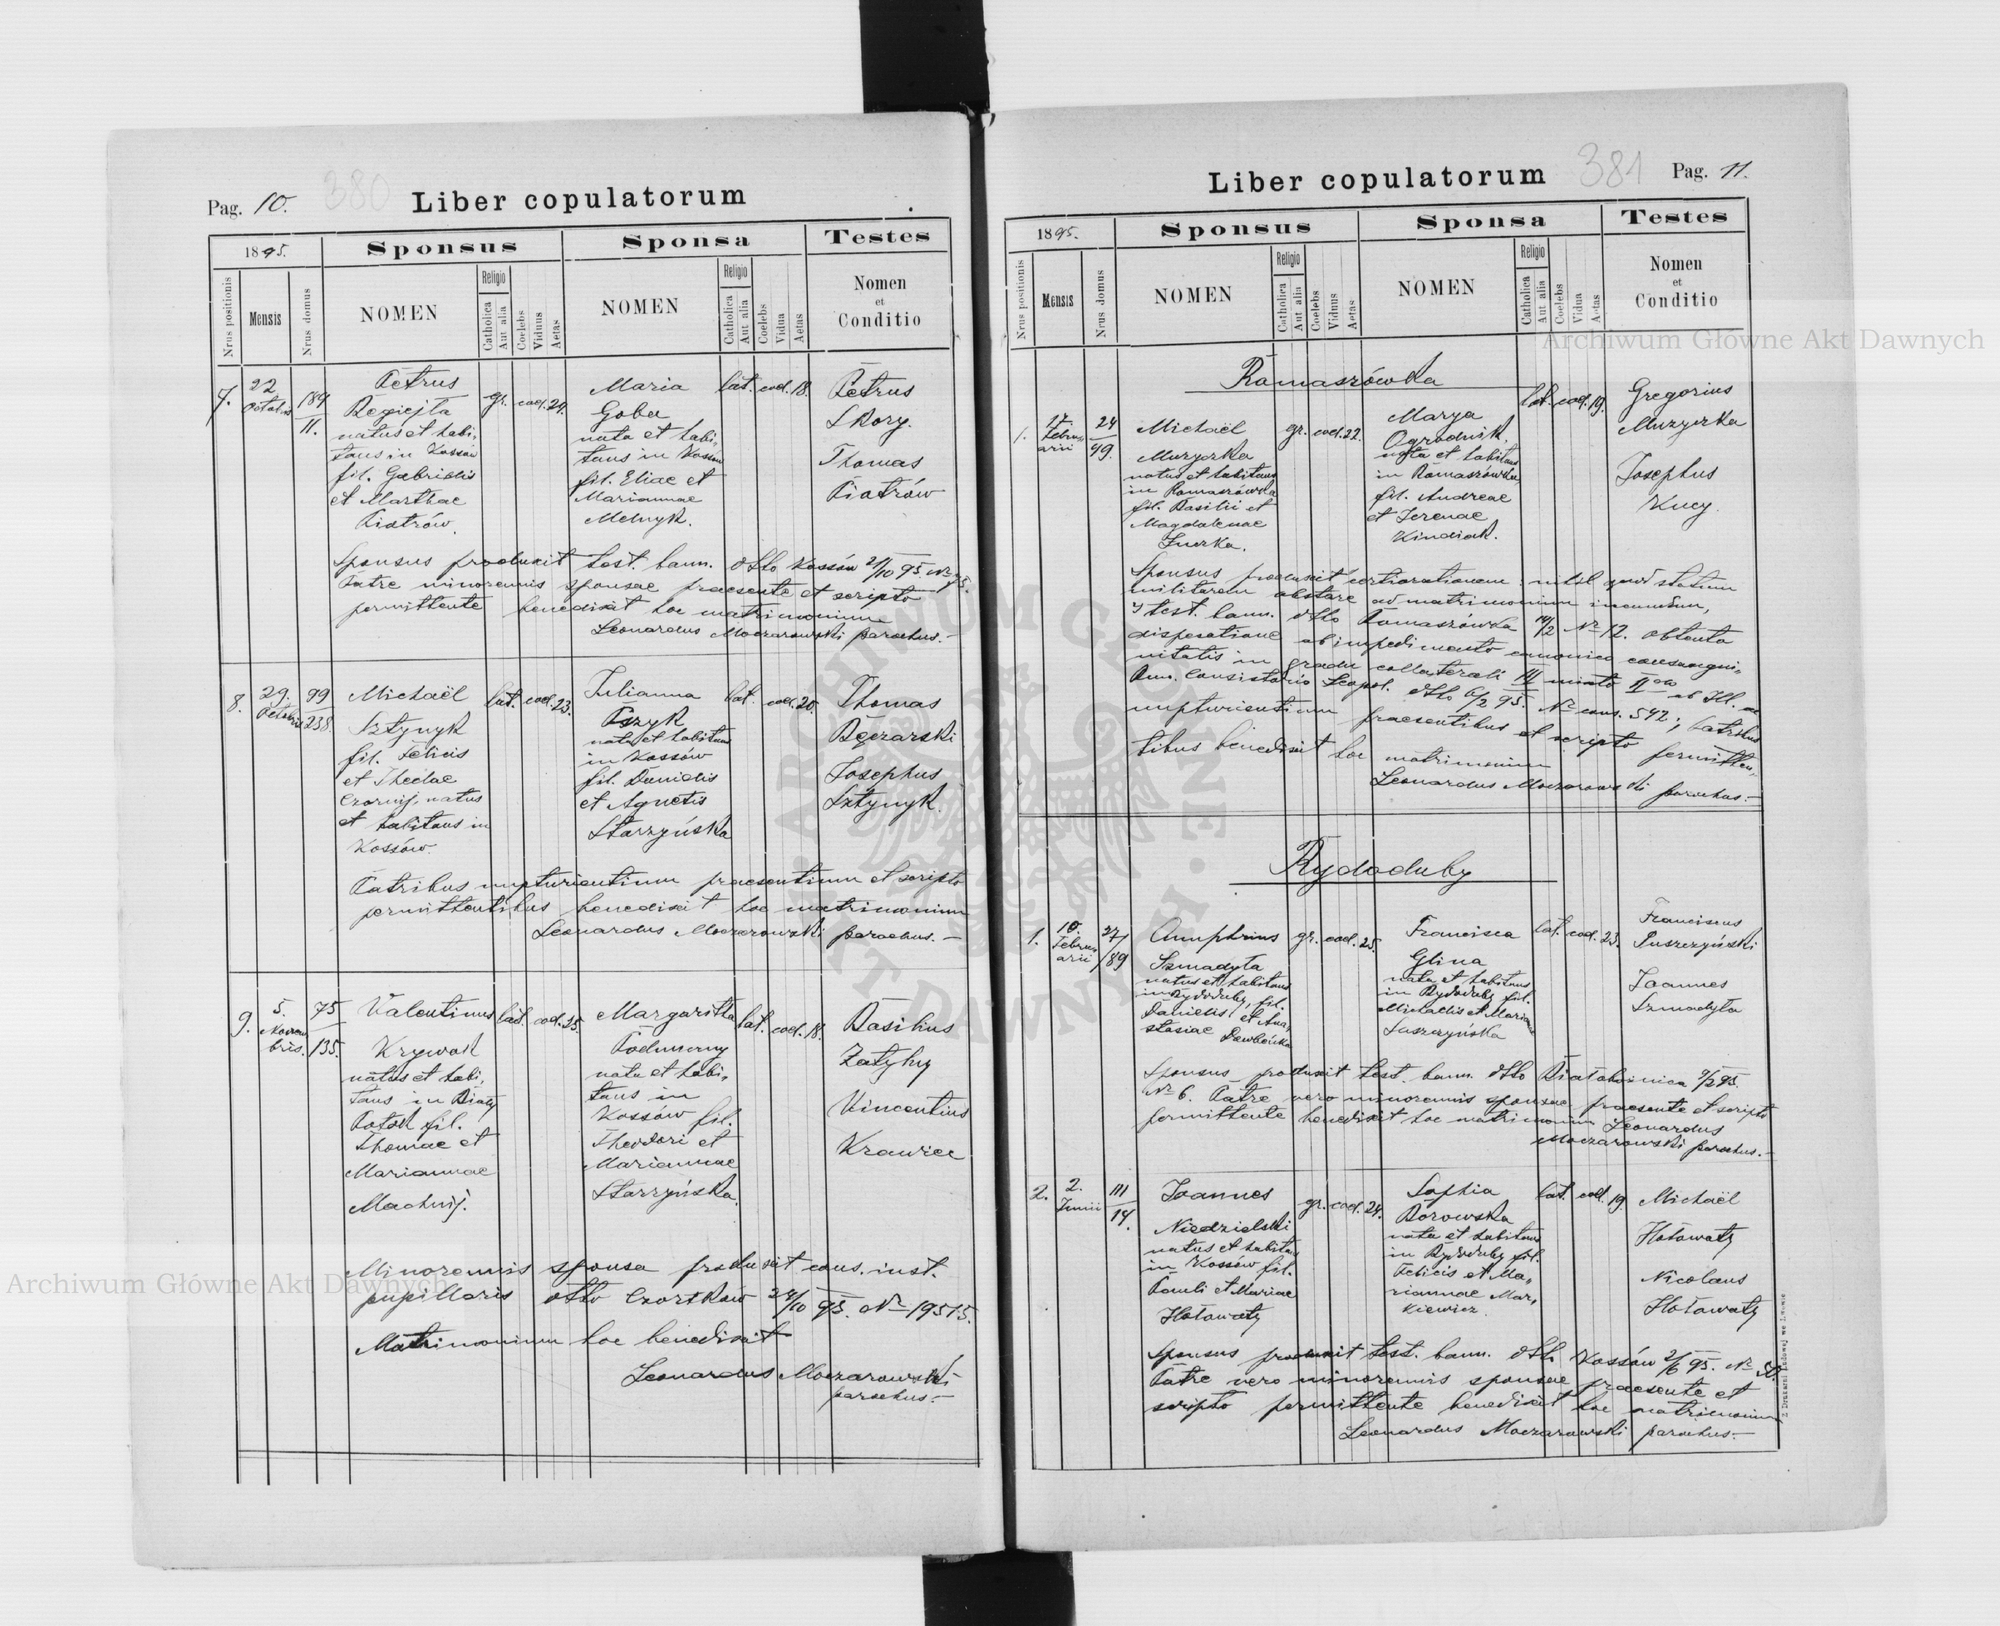 Pag. 10. 380 Liber copulatorum
1895. Sponsus Sponsa Testes
Nrus positionis Mensis Nrus domus NOMEN Religio Catholica Aut alia Coelebs Viduus Aetas NOMEN Religio Catholica Aut alia Coelebs Vidua Aetas Nomen et Conditio
7. 22 Octobris 189 11.
Petrus
natus et habi-
tans in Kossów
fil. Gabrielis
et Marthae
Piotrów.
gr. coel. 24.
Maria
Goba
nata et habi-
tans in Kossów
fil. Eliae et
Mariannae
Melnyk.
lat. coel. 18.
Petrus
Skory.
Thomas
Piotrów
Sponsus produxit test. bann. dtto Kossów 21/10 95 No
Patre minorennis sponsae praesente et scripto
permittente benedixit hoc matrimonium
Leonardus Moczarowski parochus.-
8. 29. Octobris 99 238
Michaël
Sztynyk
fil. Felicis
et Theclae
Czornij, natus
et habitans in
Kossów.
lat. coel. 23.
Julianna
nata et habitans
in Kossów
fil. Danielis
et Agnetis
Starzyńska
lat. coel. 20.
Thomas
Bęczarski
Josephus
Sztynyk.
Patribus nupturientium praesentium et scripto
permittentibus benedixit hoc matrimonium
Leonardus Moczarowski parochus.-
9. 5. Novembris. 75 135.
Valentinus
Krywak
natus et habi-
tans in Biały
Potok fil.
Thomae et
Mariannae
Machnij.
lat. coel. 25.
Margaritta
nata et habi-
tans in
Kossów fil.
Theodori et
Mariannae
Starzyńska.
lat. coel. 18.
Basilius
Zatylny
Vincentius
Krawiec
Minorennis sponsa produxit cons. inst.
pupillaris dtto Czortków 24/10 95. No 19515.
Matrimonium hoc benedixit
Leonardus Moczarowski
parochus.-
Liber copulatorum 381 Pag. 11.
1895. Sponsus Sponsa Testes
Nrus positionis Mensis Nrus domus NOMEN Religio Catholica Aut alia Coelebs Viduus Aetas NOMEN Religio Catholica Aut alia Coelebs Vidua Aetas Nomen et Conditio
Romaszówka
1. 17. Februarii 24 49.
Michaël
Muzyczka
natus et habitans
in Romaszówka
fil. Basilii et
Magdalenae
gr. coel. 22.
Marya
Ogrodnik.
nata et habitans
in Romaszówka
fil. Andreae
et Irenae
Kindiak.
lat. coel. 19.
Gregorius
Muzyczka
Josephus
Kucy.
Sponsus produxit certiorationem: nihil quod statum
militarem obstare ad matrimonium ineundum,
test. bann. dtto Romaszówka No 12. obtenta
dispesatione ab impedimento canonico consangui-
nitatis in gradu collaterali III mixto II ab Ill. ac
Rmo. Consistorio Leopol. dtto 6/2 95. No cons. 542; Patribus
nupturientium praesentibus et scripto permitten-
tibus benedixit hoc matrimonium
Leonardus Moczarowski parochus.-
Rydoduby
1. 10. Februarii 27/89
Onuphrius
Szmadyła
natus et habitans
in Rydoduby, fil.
Danielis et Ana-
stasiae
gr. coel. 25.
Francisca
Glina
nata et habitans
in Rydoduby fil.
Michaelis et Mariannae
lat. coel. 23.
Franciscus
Puszczyński
Joannes
Szmadyła
Sponsus produxit test. bann. dtto Białobożnica 9/2 95.
No 6. Patre vero minorennis sponsae praesente et scripto
permittente benedixit hoc matrimonium Leonardus
Moczarowski parochus.-
2. 2. Junii 111 14.
Joannes
Niedzielski
natus et habitans
in Kossów fil.
Pauli et Mariae
Hołowaty
gr. coel. 24.
Sophia
Borowska
nata et habitans
in Rydoduby fil.
Felicis et Ma-
riannae Mar-
kiewicz.
lat. coel. 19.
Michaël
Hołowaty
Nicolaus
Hołowaty
Sponsus produxit test. bann. dtto Kossów 2/6 95. No
Patre vero minorennis sponsae praesente et
scripto permittente benedixit hoc matrimonium
Leonardus Moczarowski parochus.-
Z Drukarni Ludowej we Lwowie
Archiwum Główne Akt Dawnych
Archiwum Główne Akt Dawnych
ARCHIWUM GŁÓWNE AKT DAWNYCH